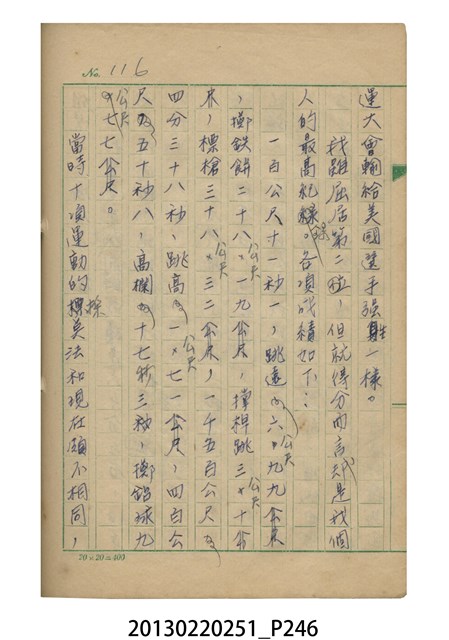 No. 116
運大會輸給美國選手强生一樣。
我雖屈居第二位，但就得分而言却是我個
人的最高紀錄。各項成績如下：
一百公尺十一秒一，跳遠六公尺九九
，擲鉄餅二十八公尺一九，撑桿跳三公尺十
，標槍三十八公尺三二，一千五百公尺
四分三十八秒，跳高一公尺七一，四百公
尺五十秒八，高欄十七秒三，擲鉛球九
公尺七七。
當時十項運動的採算法和現在頗不相同，
20×20=400
20130220251_P246